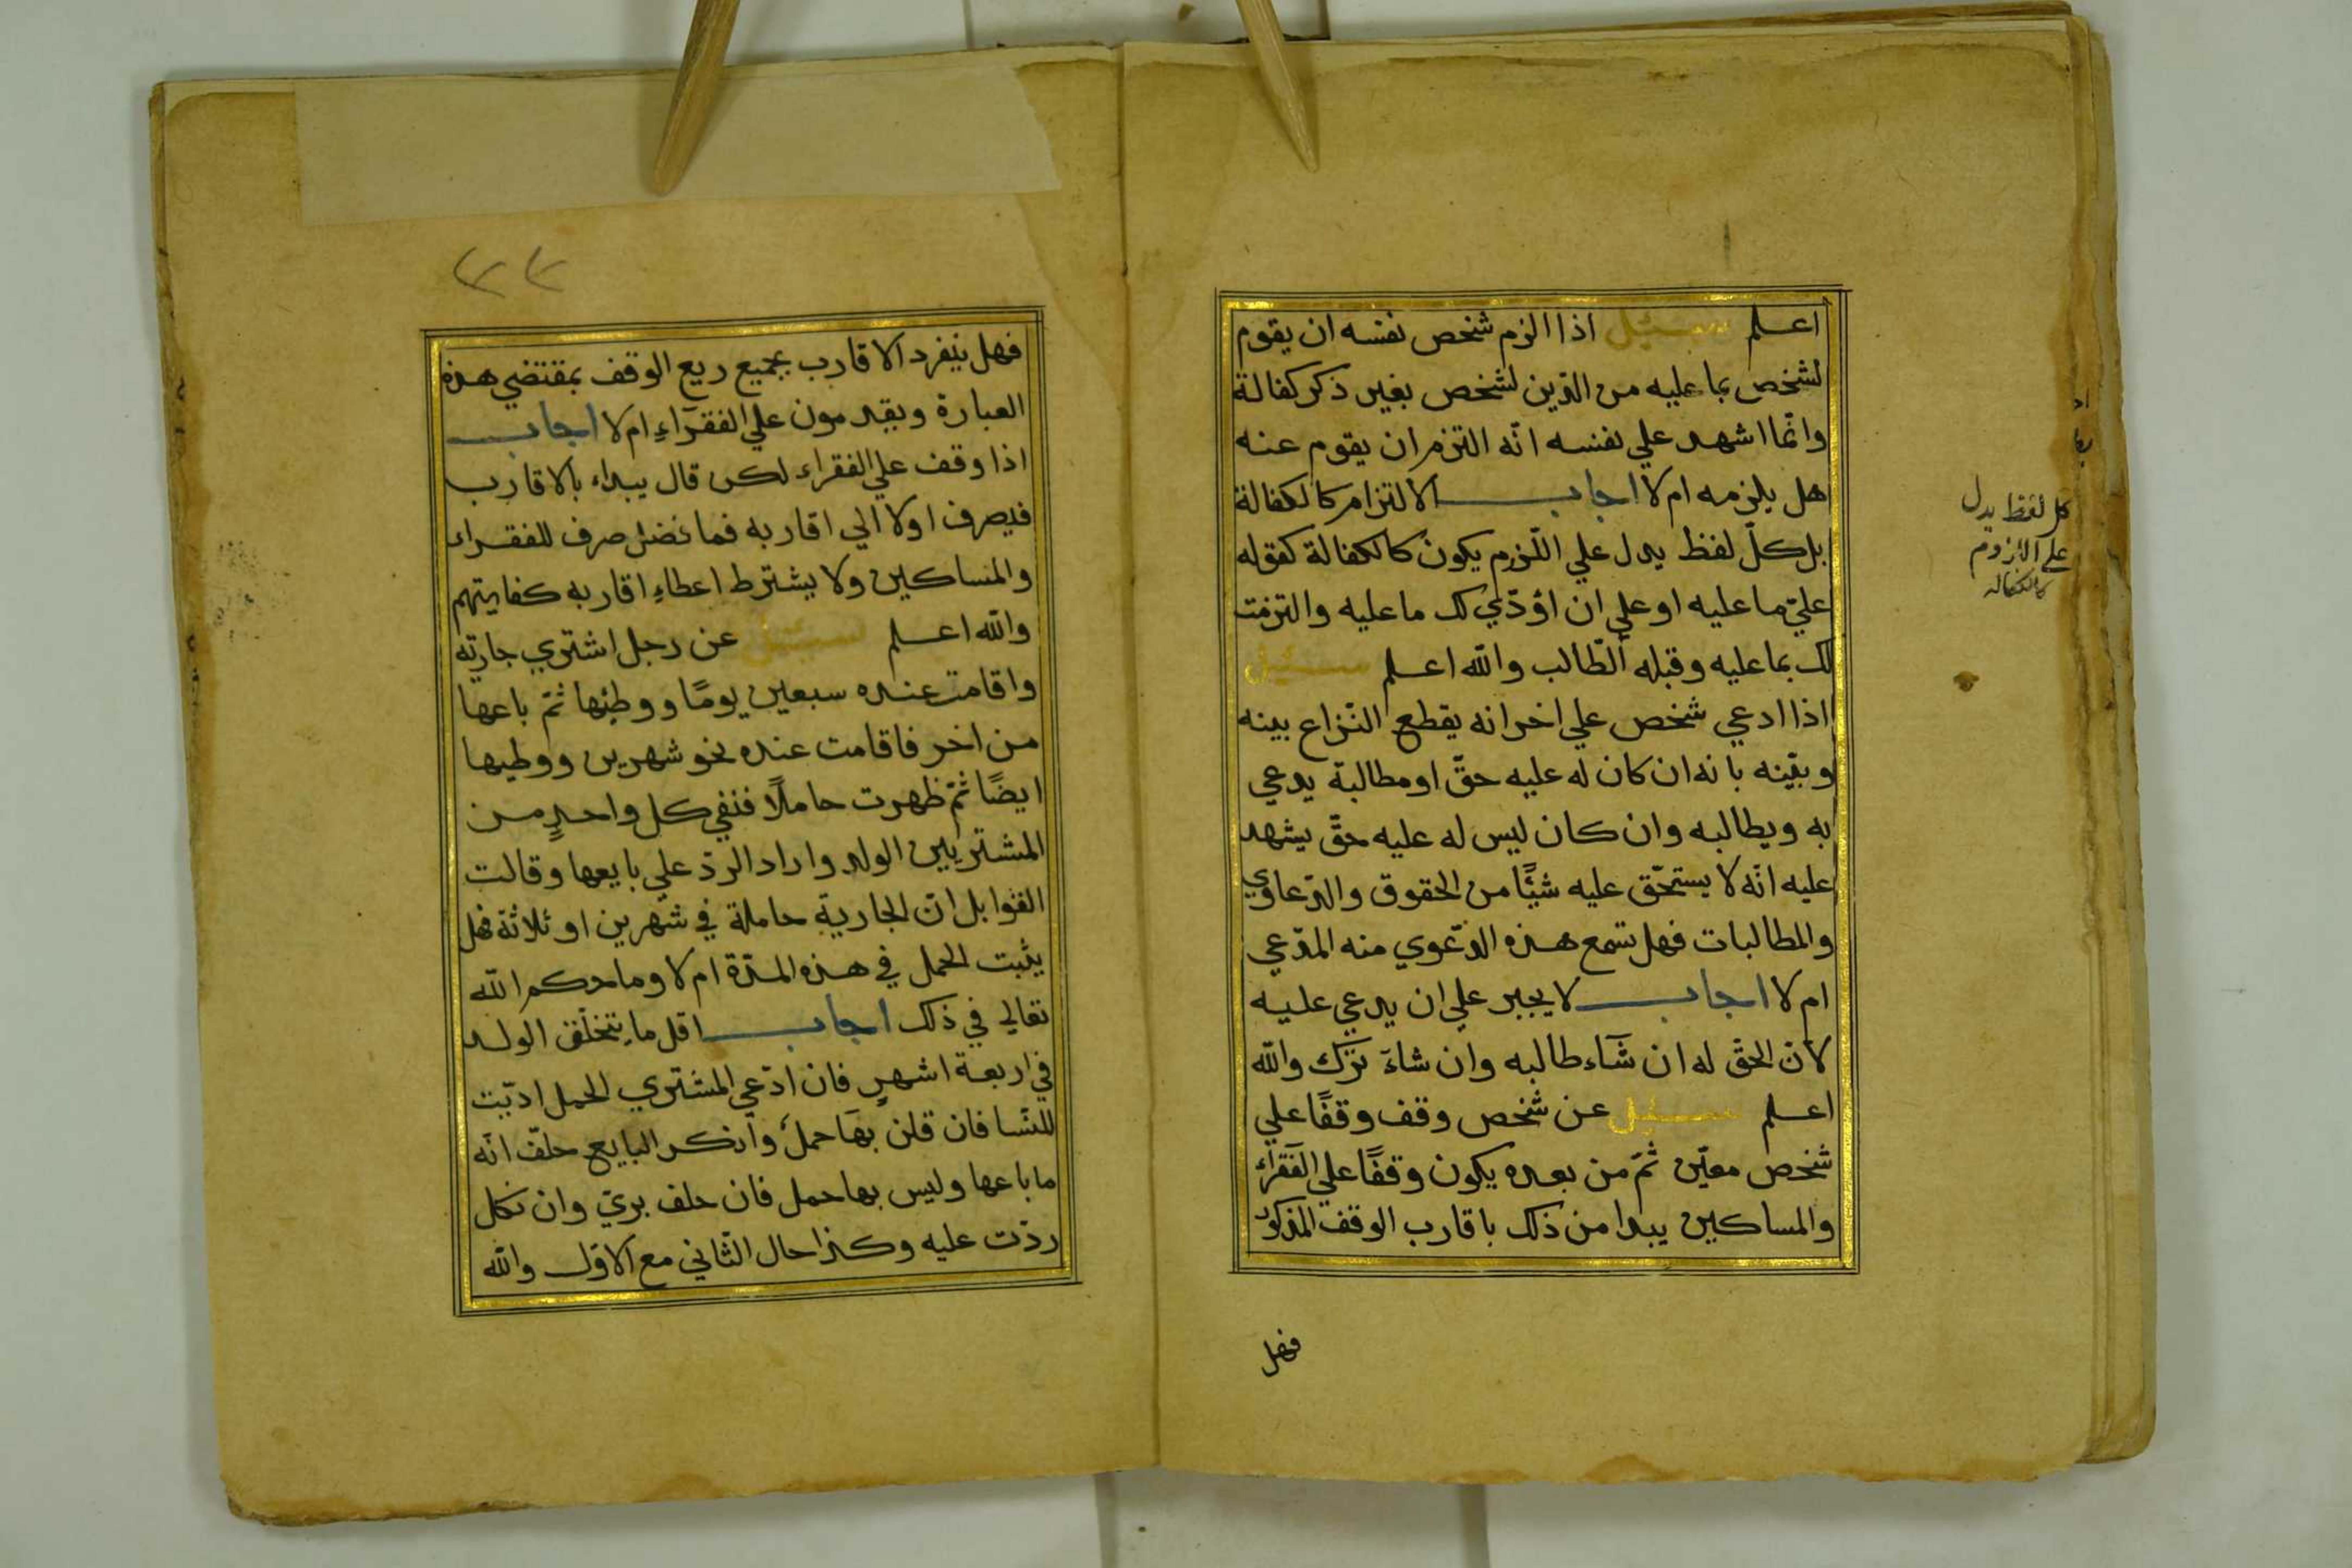 اعلم سئل اذا الزم شخص نفسه ان يقوم
لشخص بما عليه من الدّين لشخص بغير ذكر كفالة
وانّما اشهد علي نفسه انّه التزم ان يقوم عنه
هل يلزمه ام لا اجاب الالتزام كالكفالة
بل كلّ لفظ يدل علي اللّزوم يكون كالكفالة كقوله
عليّ ما عليه او علي ان اؤدّي لك ما عليه والتزمت
لك بما عليه وقبله الطّالب والله اعلم سئل
اذا ادعي شخص علي اخر انه يقطع النّزاع بينه
وبيّنه بانه ان كان له عليه حقّ او مطالبة يدعي
به ويطالبه وان كان ليس له عليه حقّ يشهد
عليه انّه لا يستحّق عليه شئًا من الحقوق والدّعاوي
والمطالبات فهل تسمع هذه الدّعوي منه المدّعي
ام لا اجاب لا يجبر علي ان يدعي عليه
لانّ الحقّ له ان شآء طالبه وان شاءَ ترك والله
اعلم سئل عن شخص وقف وقفًا علي
شخص معيّن ثمّ من بعده يكون وقفًا علي الفقرآء
والمساكين يبدا من ذلك باقارب الوقف المذكور
فهل
كل لفظ يدل
علي اللزوم
كالكفاله
٢٢
فهل ينفرد الاقارب بجميع ريع الوقف بمقتضي هذه
العبارة ويقدمون علي الفقرآءِ ام لا اجاب
اذا وقف علي الفقراء لكن قال يبداء بالاقارب
فيصرف اولا الي اقاربه فما فضل صرف للفقراء
والمساكين ولا يشترط اعطاءِ اقاربه كفايتهم
والله اعلم سئل عن رجل اشتري جارية
واقامت عنده سبعين يومًا ووطئها ثمّ باعها
من اخر فاقامت عنده نحو شهرين ووطيها
ايضًا ثمّ ظهرت حاملًا فنفي كل واحدٍ من
المشتريين الولد واراد الردّ علي بايعها وقالت
القوابل انّ الجارية حاملة في شهرين او ثلاثة فهل
يثبت الحمل في هذه المدّة ام لا وما حكم الله
تعالي في ذلك اجاب اقل ما يتخلّق الولد
في اربعة اشهرٍ فان ادّعي المشتري الحمل اديّت
للنّسا فان قلن بها حملٌ وانكر البايع حلّف انّه
ما باعها وليس بها حمل فان حلف بريّ وان نكل
ردّت عليه وكذا حال الثّاني مع الاوّل والله